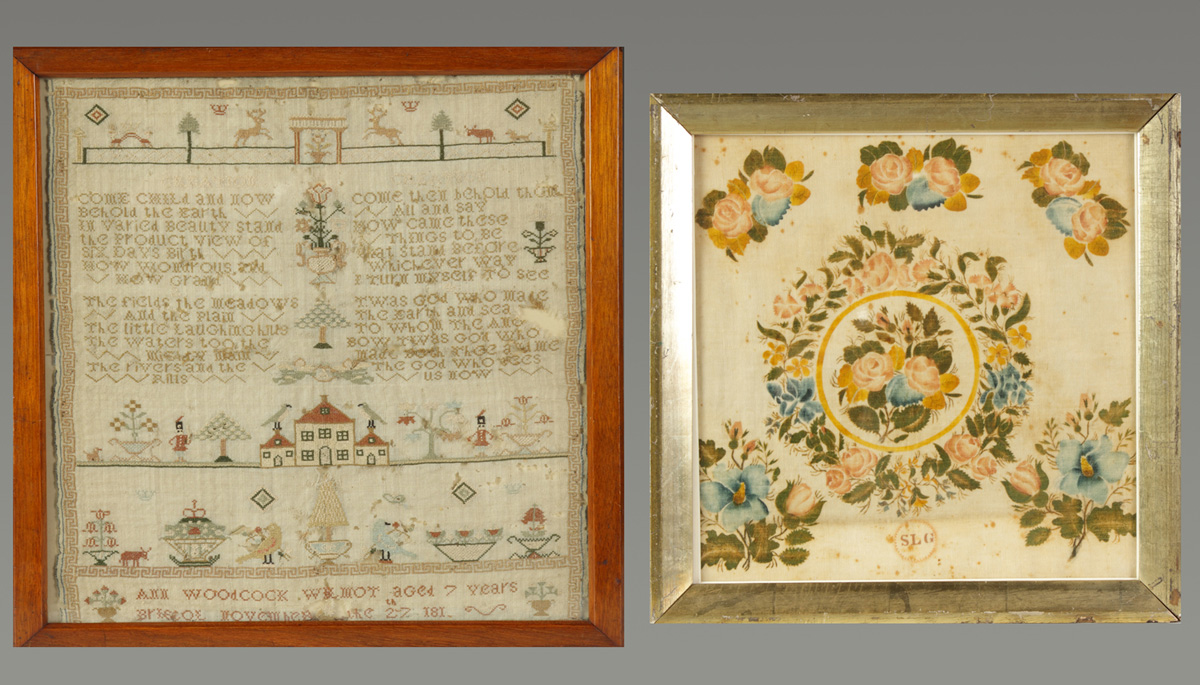 COME CHILd and NOW
Behold the Earth
IN Varied Beauty stand
the Product View of
Six Days Birth
HOW WONdrous, and
HOW Grand
The fields the MEADOWS
And the Plain
The little Laughing hills
The Waters too the
Mighty Main
The rivers and the
Rills
COME then behold them
All and say
HOW came these
Things to BE
that stand Before
Whichever Way
I turn MYself To see
TWAS GOD WHO Made
The Earth and sea
TO WHOM The
BOW TWAS GOD WHO
Made Both Thee and me
The GOD WHO sees
us NOW
ANN WOODCOCK aged 7 years
Bristol November the 27th 181
SLG